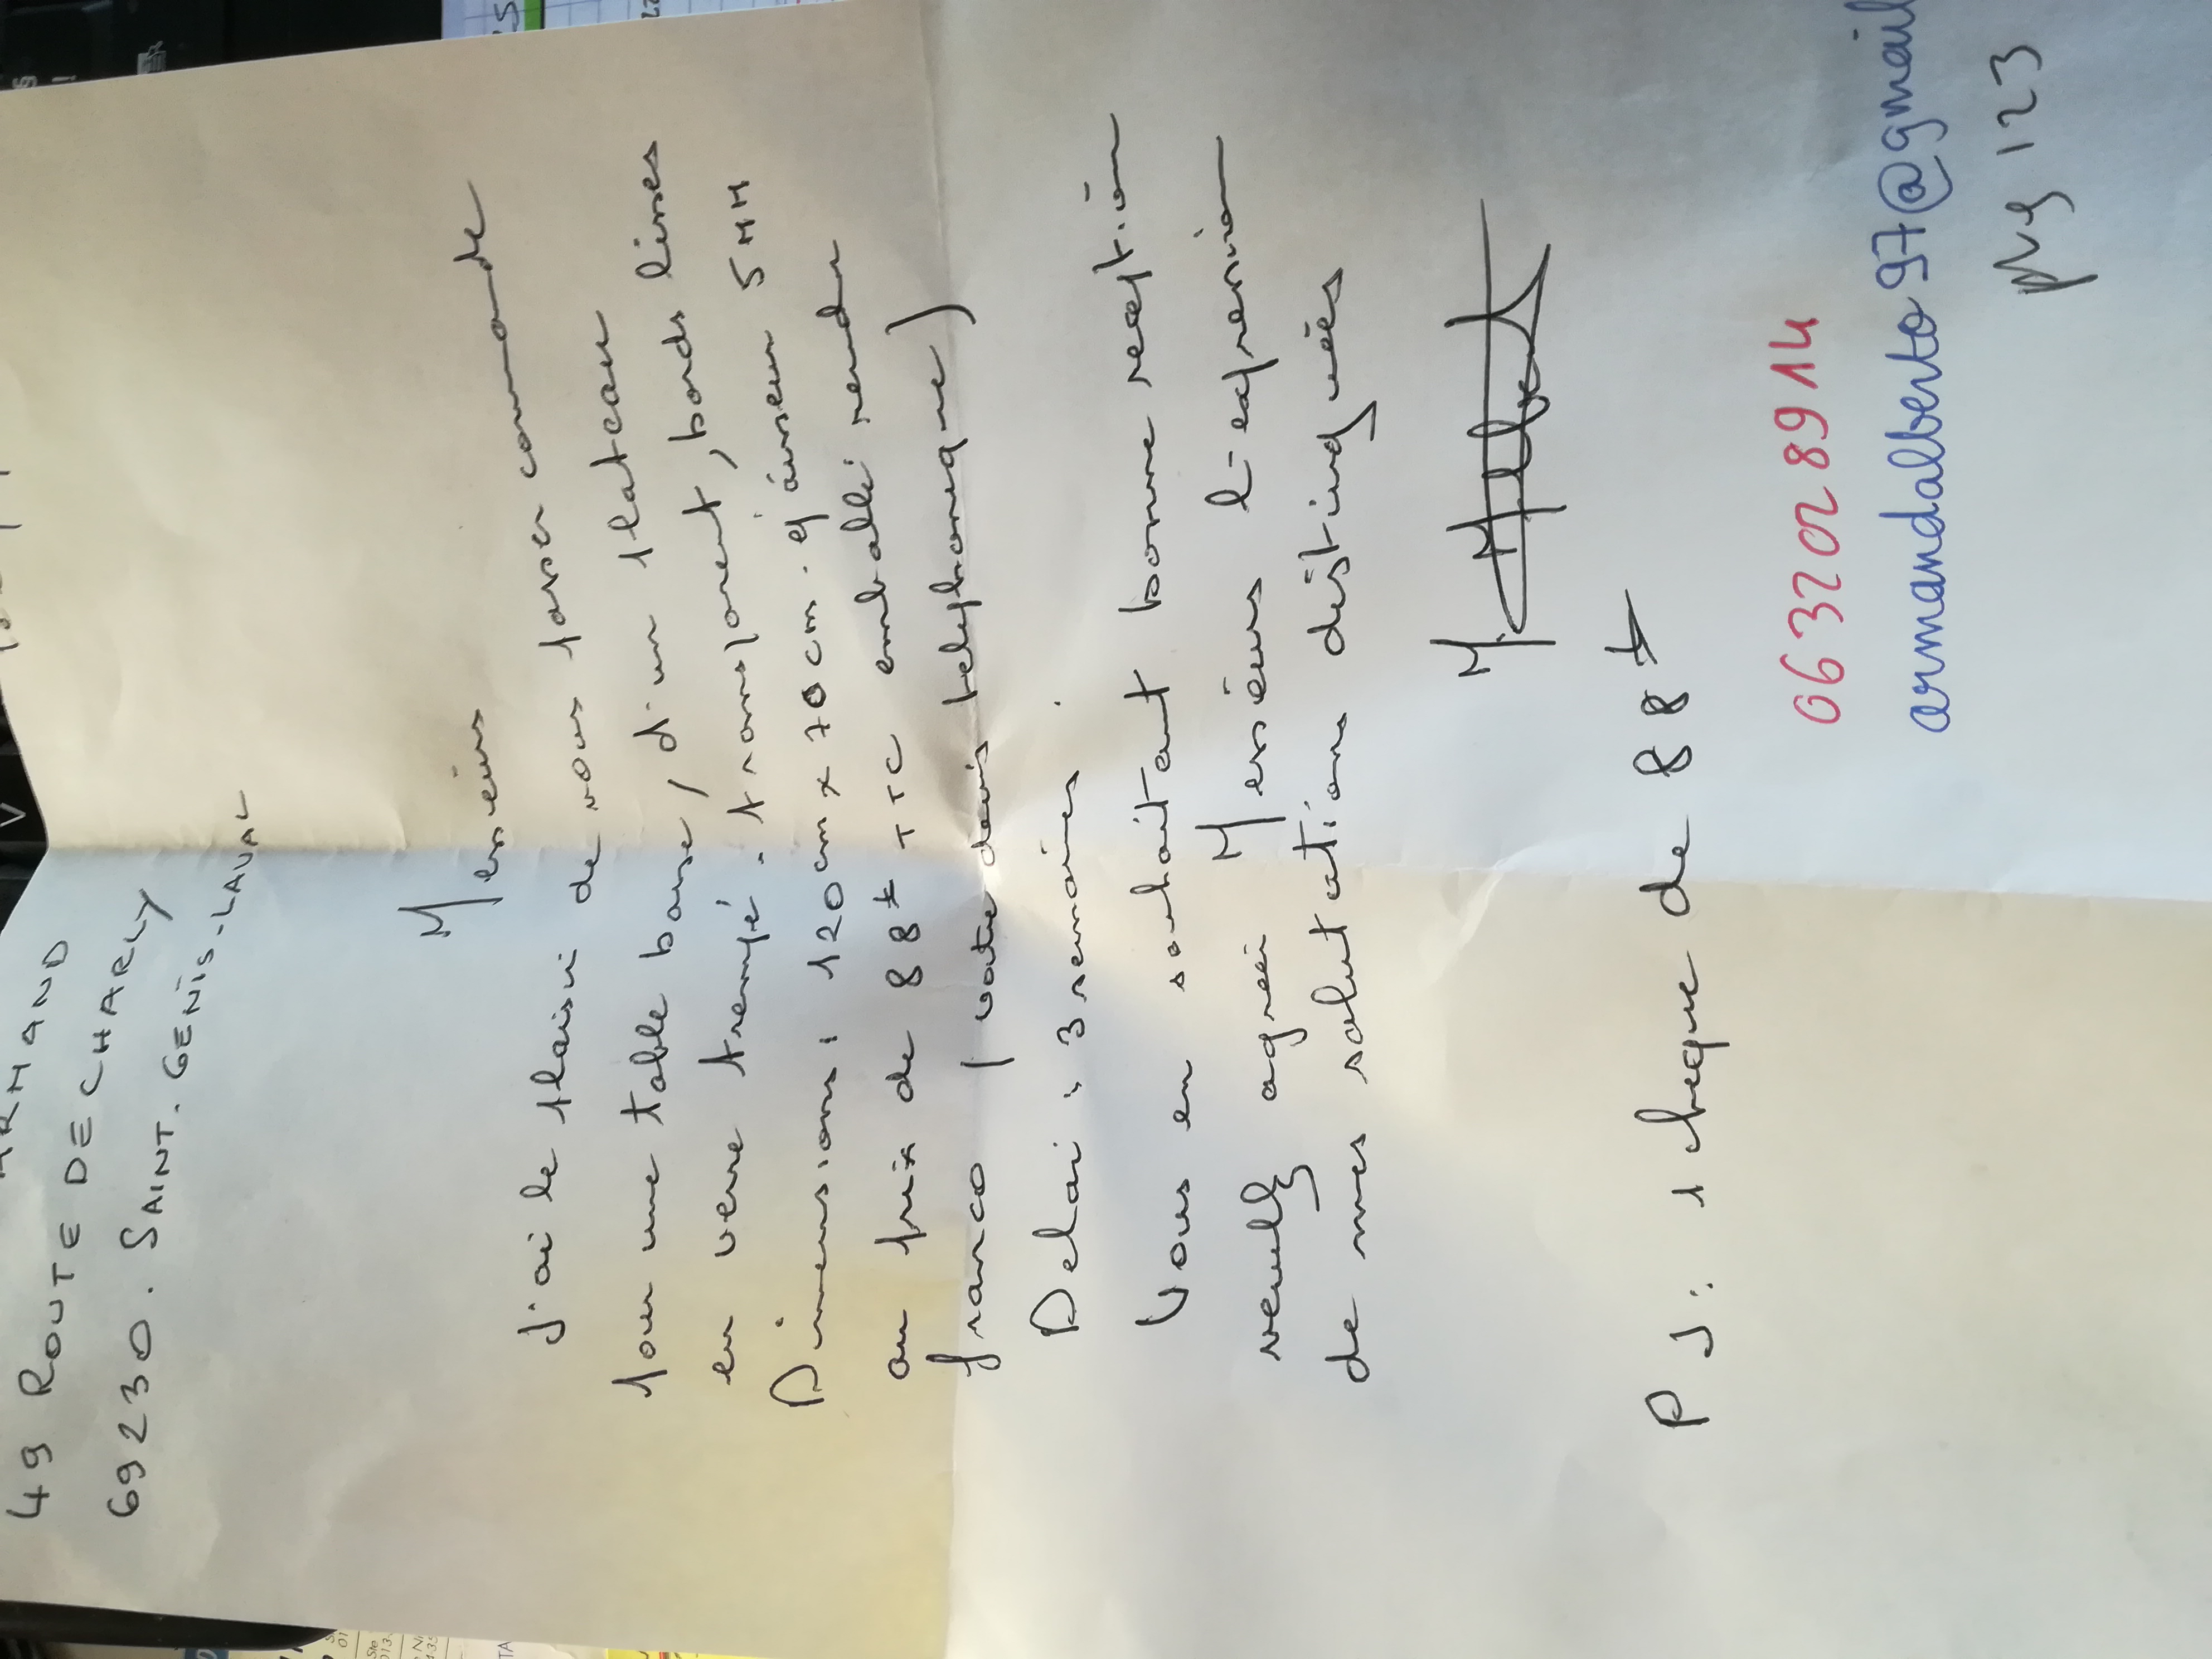 ARMAND
49 ROUTE DE CHARLY
69230. SAINT. GENIS-LAVAL
Messieurs
J'ai le plaisir de vous passer commande
pour une table basse, d'un plateau
en verre trempé. transparent, bords lisses
Dimensions : 120cm x 70cm. épaisseur 5MM
au prix de 88€ TTC emballé rendu
franco (votre devis telephonique)
Delai : 3 semaines.
Vous en souhaitant bonne reception
veuillez agréer Messieurs l'expression
de mes salutations distinguées
PJ : 1 cheque de 88€
0632028914
armandalberto97@gmail
123